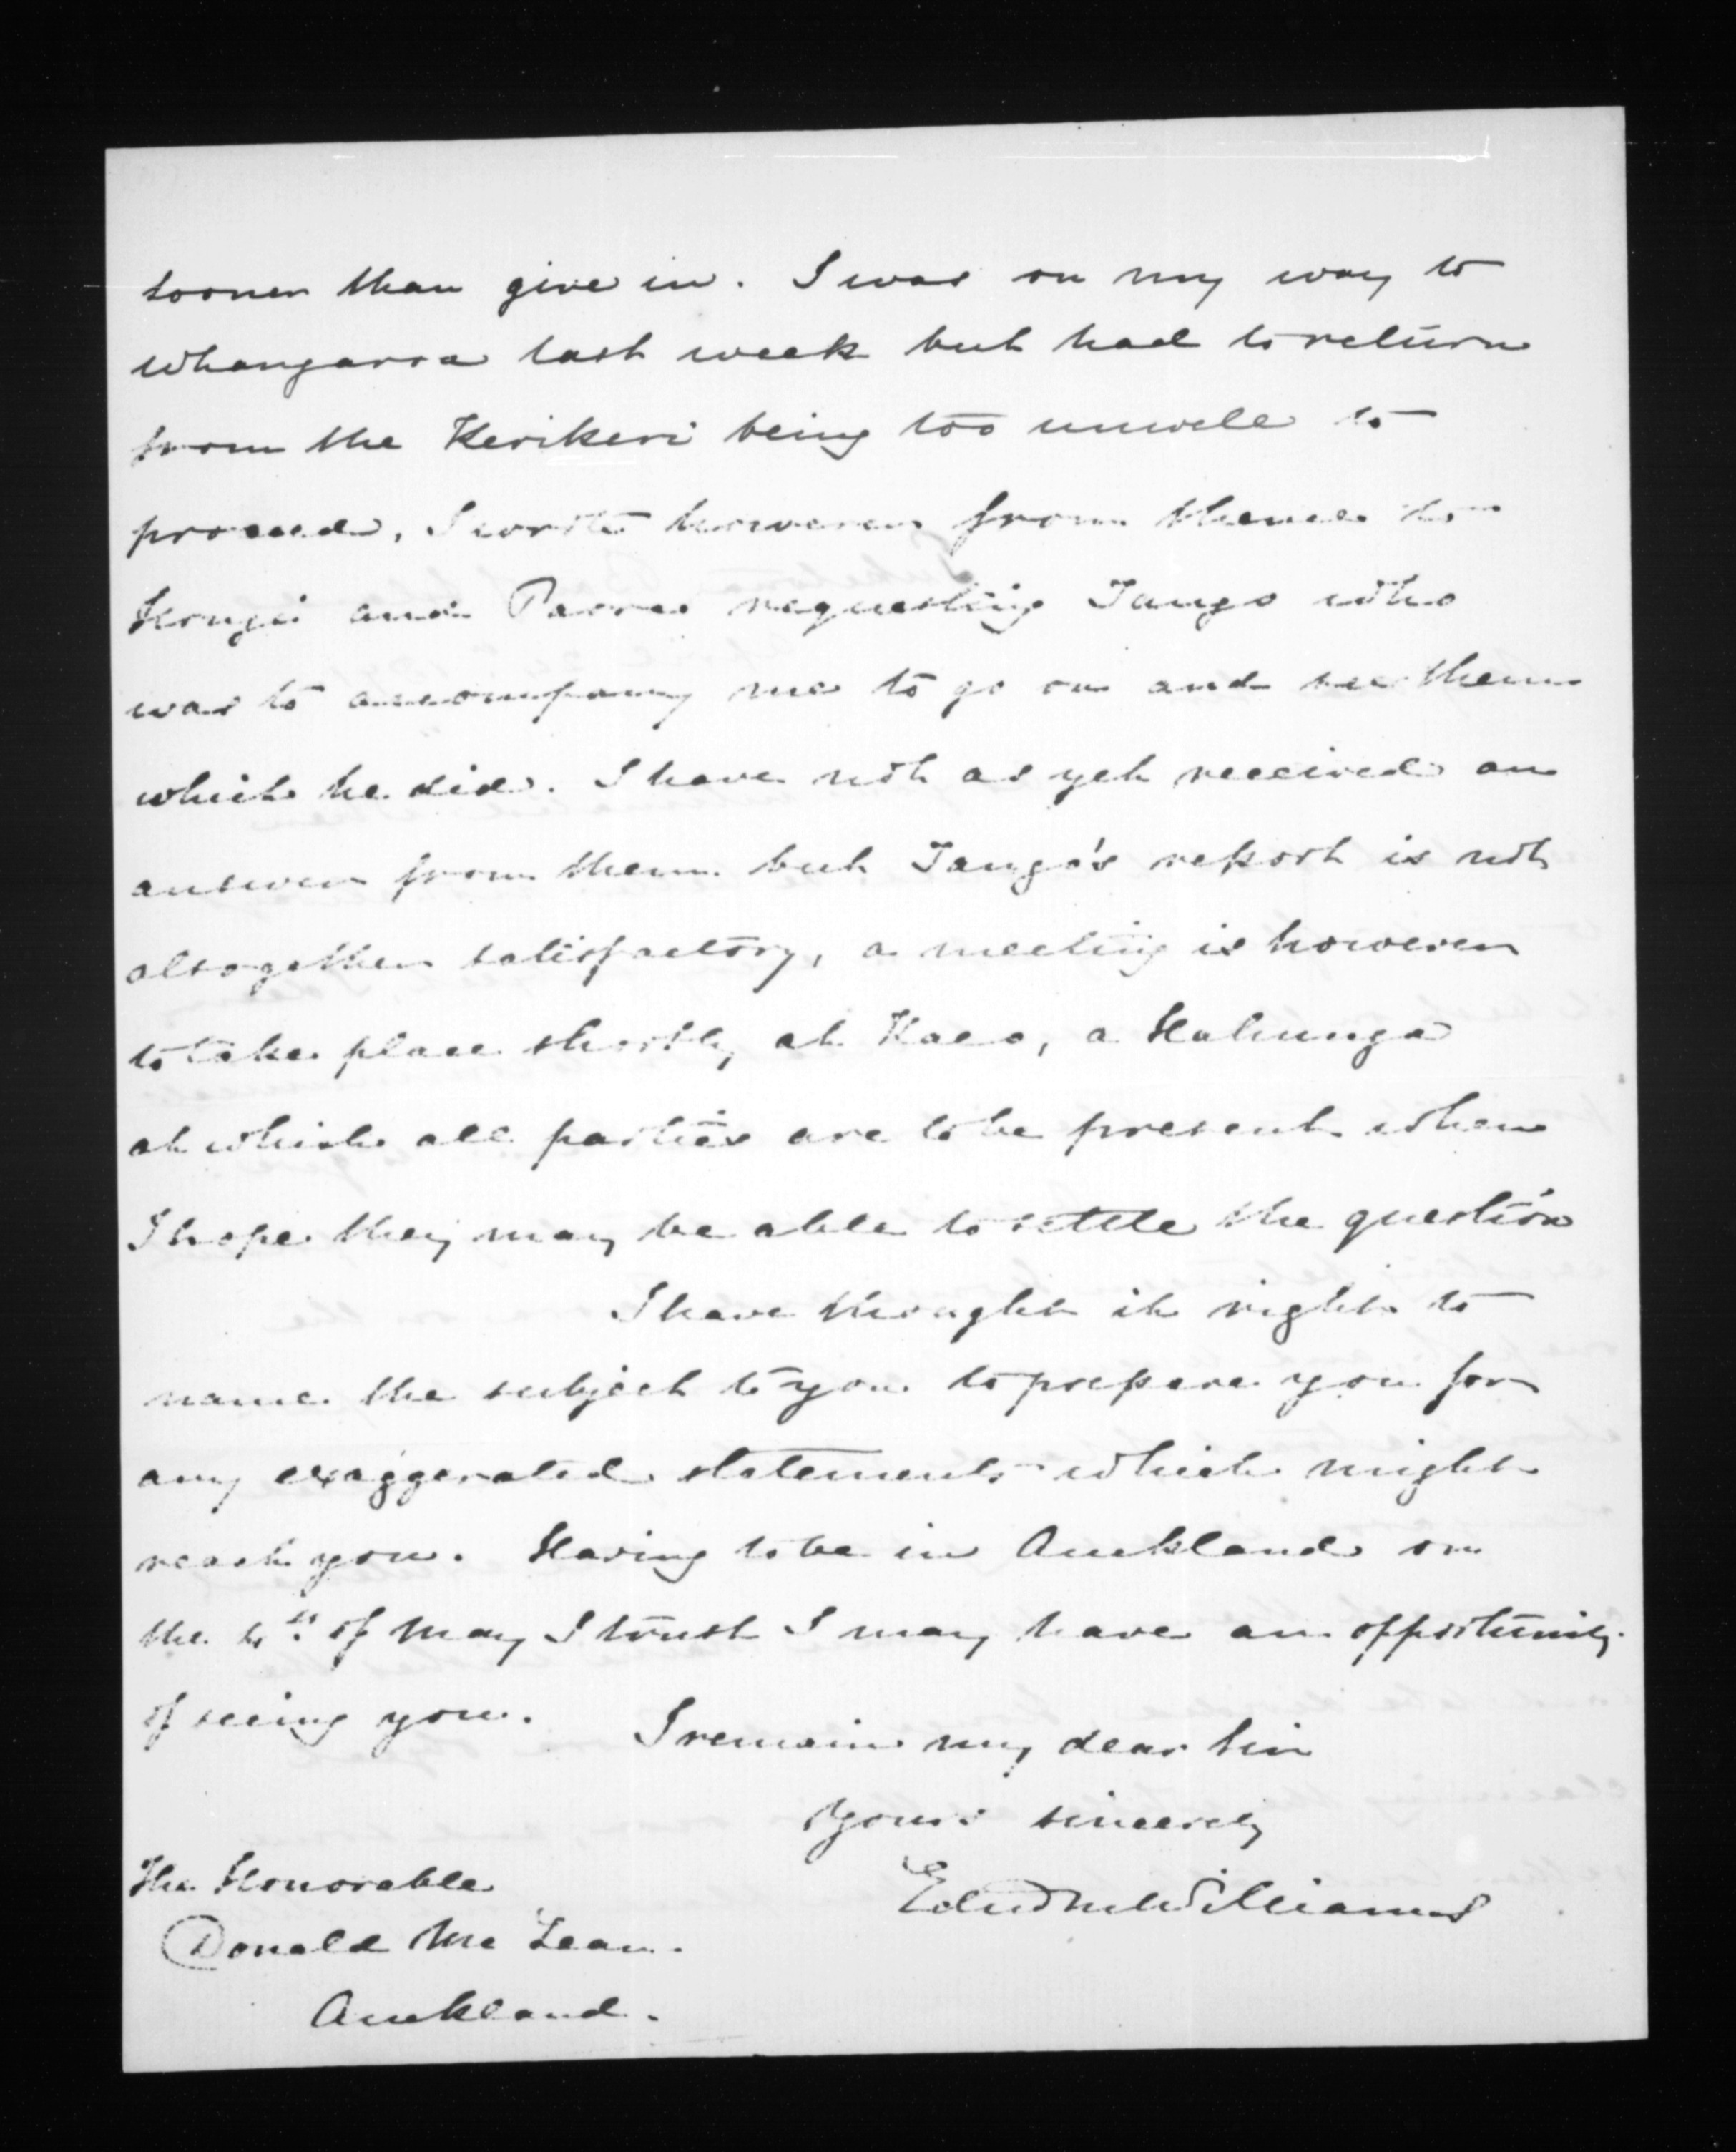 sooner than give in. I was on my way to
Whangaroa last week but had to return
from the Kerikeri being too unwell to
proceed, I wrote however from thence to
Hongi and requesting Tango who
was to accompany me to go on and see them
which he did. I have not as yet received an
answer from them but Tango's report is not
altogether satisfactory, a meeting is however
to take place shortly at Kaeo, a Hahunga
at which all parties are to be present when
I hope they may be able to settle the question
I have thought it right to
name the subject to you to prepare you for
any exaggerated statements which might
reach you. Having to be in Auckland on
the of May I trust I may have an opportunity
of seeing you.
I remain my dear Sir
Yours sincerely
Edwd M Williams
The Honorable
Donald McLean.
Auckland.